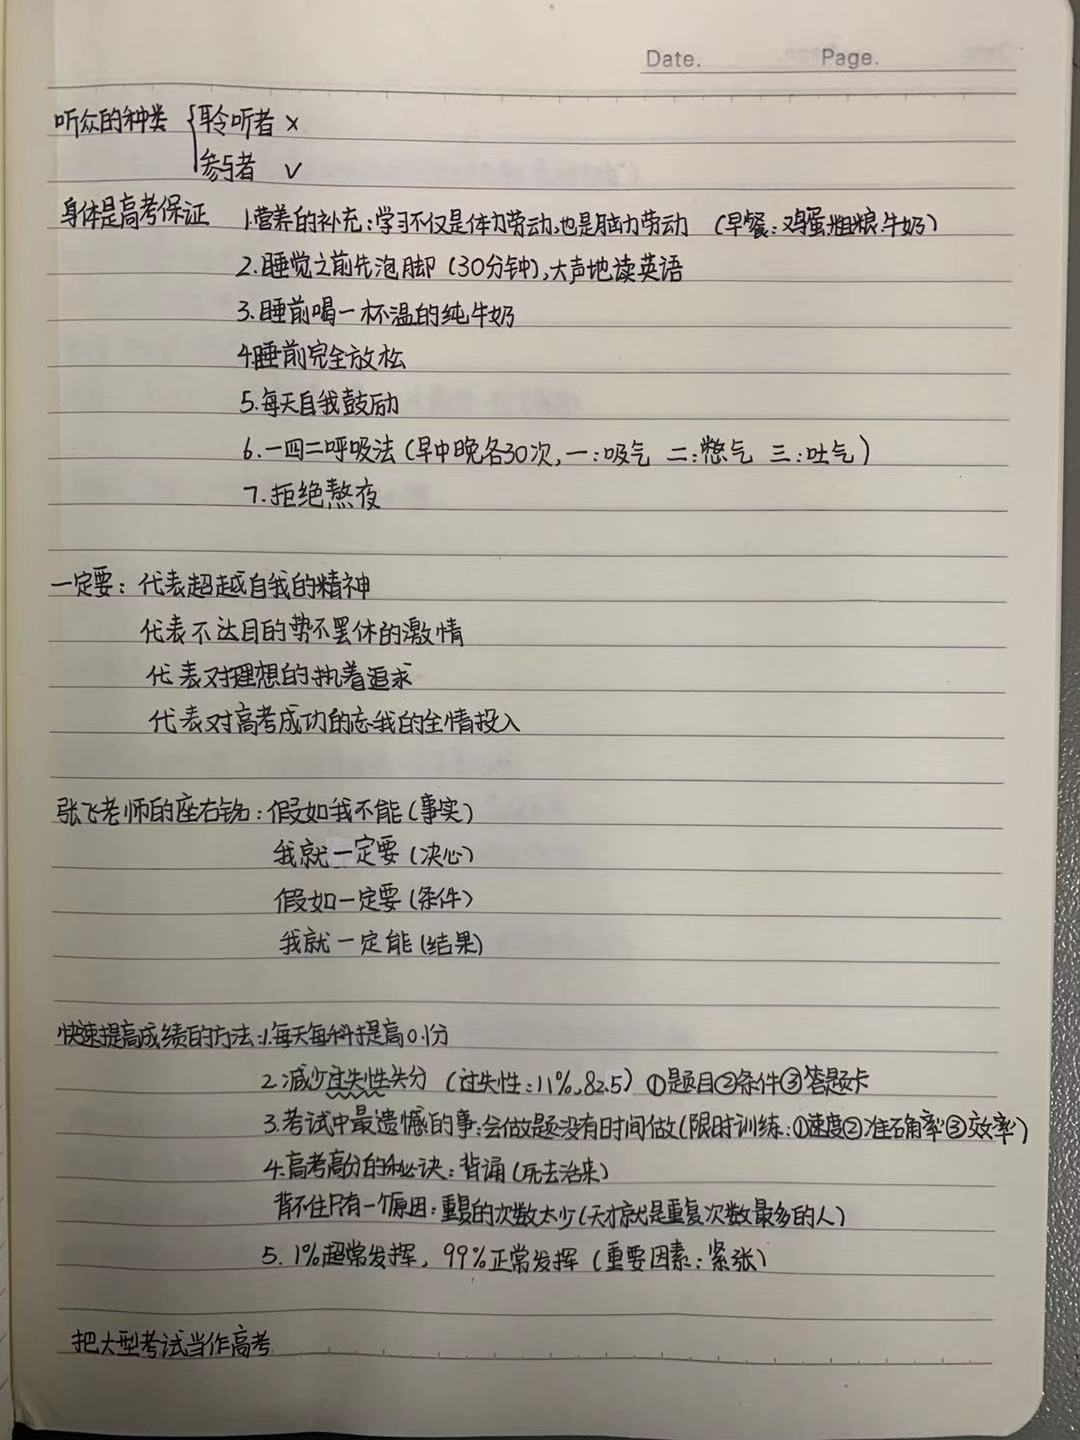 Date. Page.
听众的种类 { 聆听者 ×
参与者 √
身体是高考保证 1.营养的补充:学习不仅是体力劳动,也是脑力劳动 (早餐:鸡蛋.粗粮.牛奶)
2.睡觉之前先泡脚(30分钟),大声地读英语
3.睡前喝一杯温的纯牛奶
4.睡前完全放松
5.每天自我鼓励
6.一四二呼吸法(早中晚各30次,一:吸气 二:憋气 三:吐气)
7.拒绝熬夜
一定要:代表超越自我的精神
代表不达目的势不罢休的激情
代表对理想的执着追求
代表对高考成功的忘我的全情投入
张飞老师的座右铭:假如我不能(事实)
我就一定要(决心)
假如一定要(条件)
我就一定能(结果)
快速提高成绩的方法:1.每天每科提高0.1分
2.减少过失性失分 (过失性:11%,82.5) ①题目②条件③答题卡
3.考试中最遗憾的事:会做题没有时间做(限时训练:①速度②准确率③效率)
4.高考高分的秘诀:背诵(死去活来)
背不住只有一个原因:重复的次数太少(天才就是重复次数最多的人)
5. 1%超常发挥,99%正常发挥(重要因素:紧张)
把大型考试当作高考